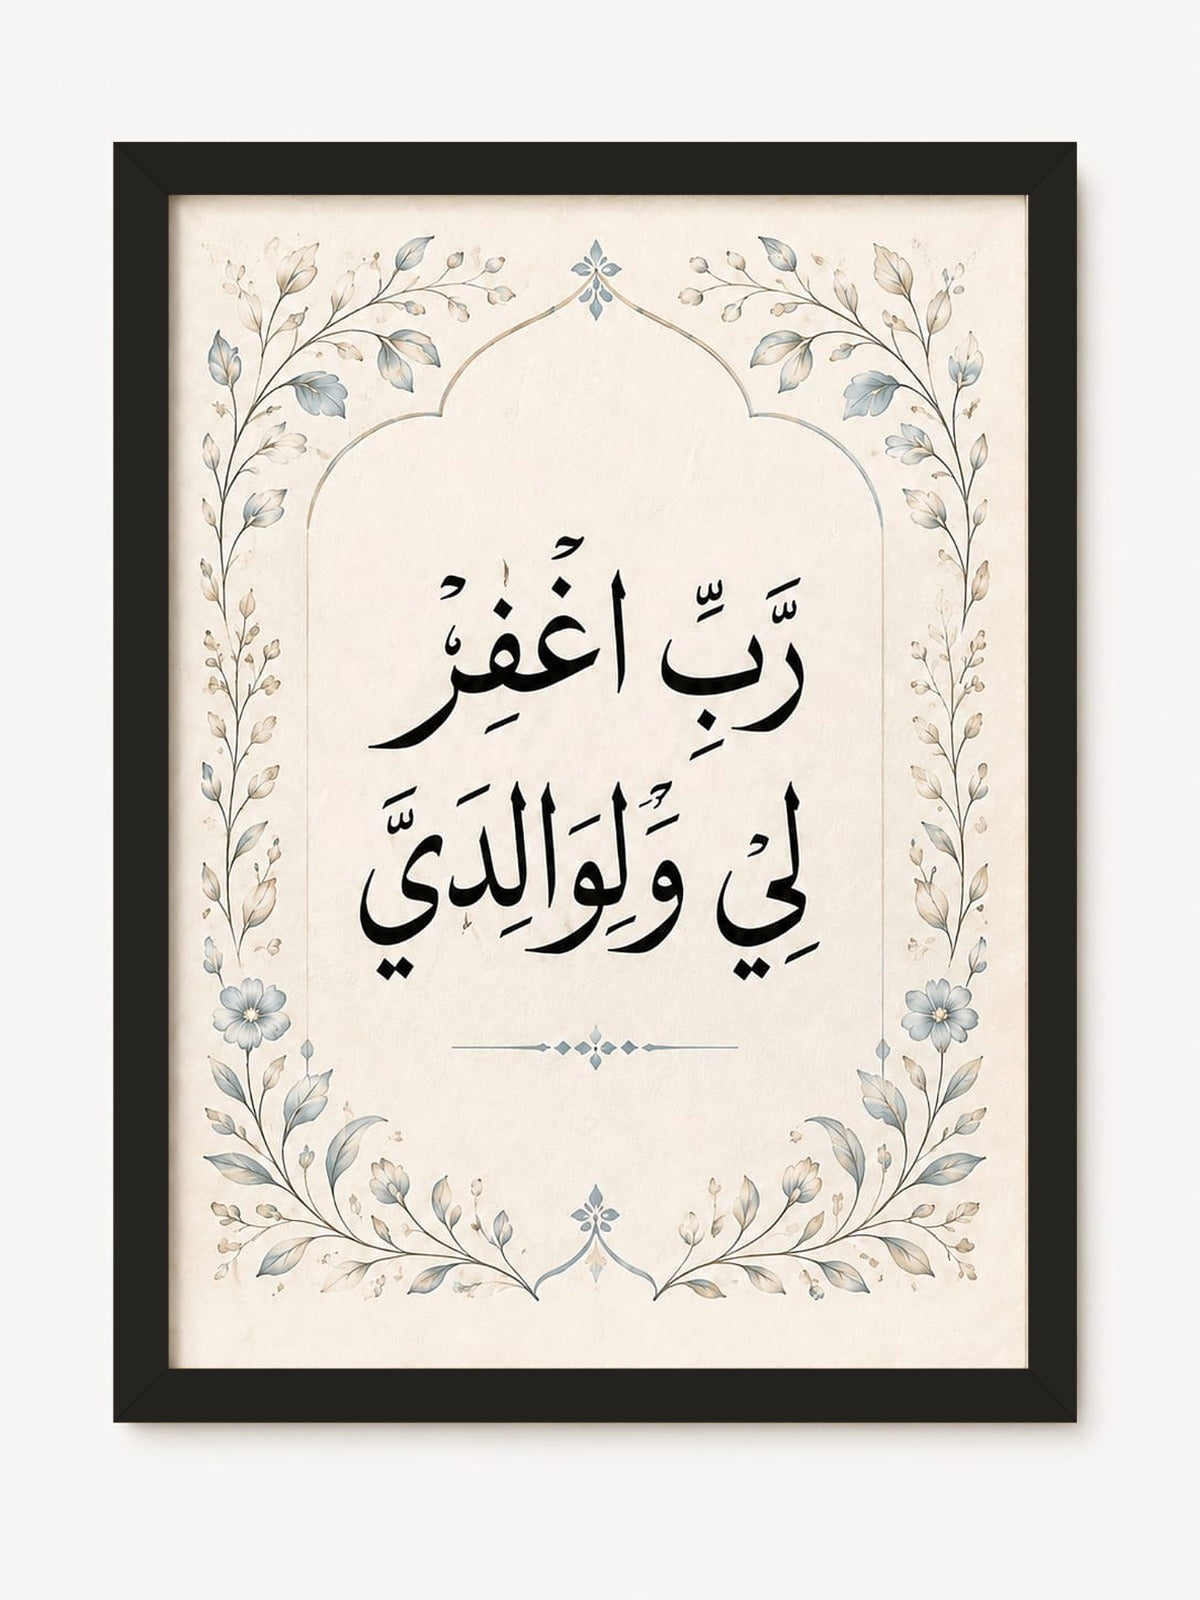 رَّبِّ اغْفِرْ
لِيْ وَلِوَالِدَيَّ